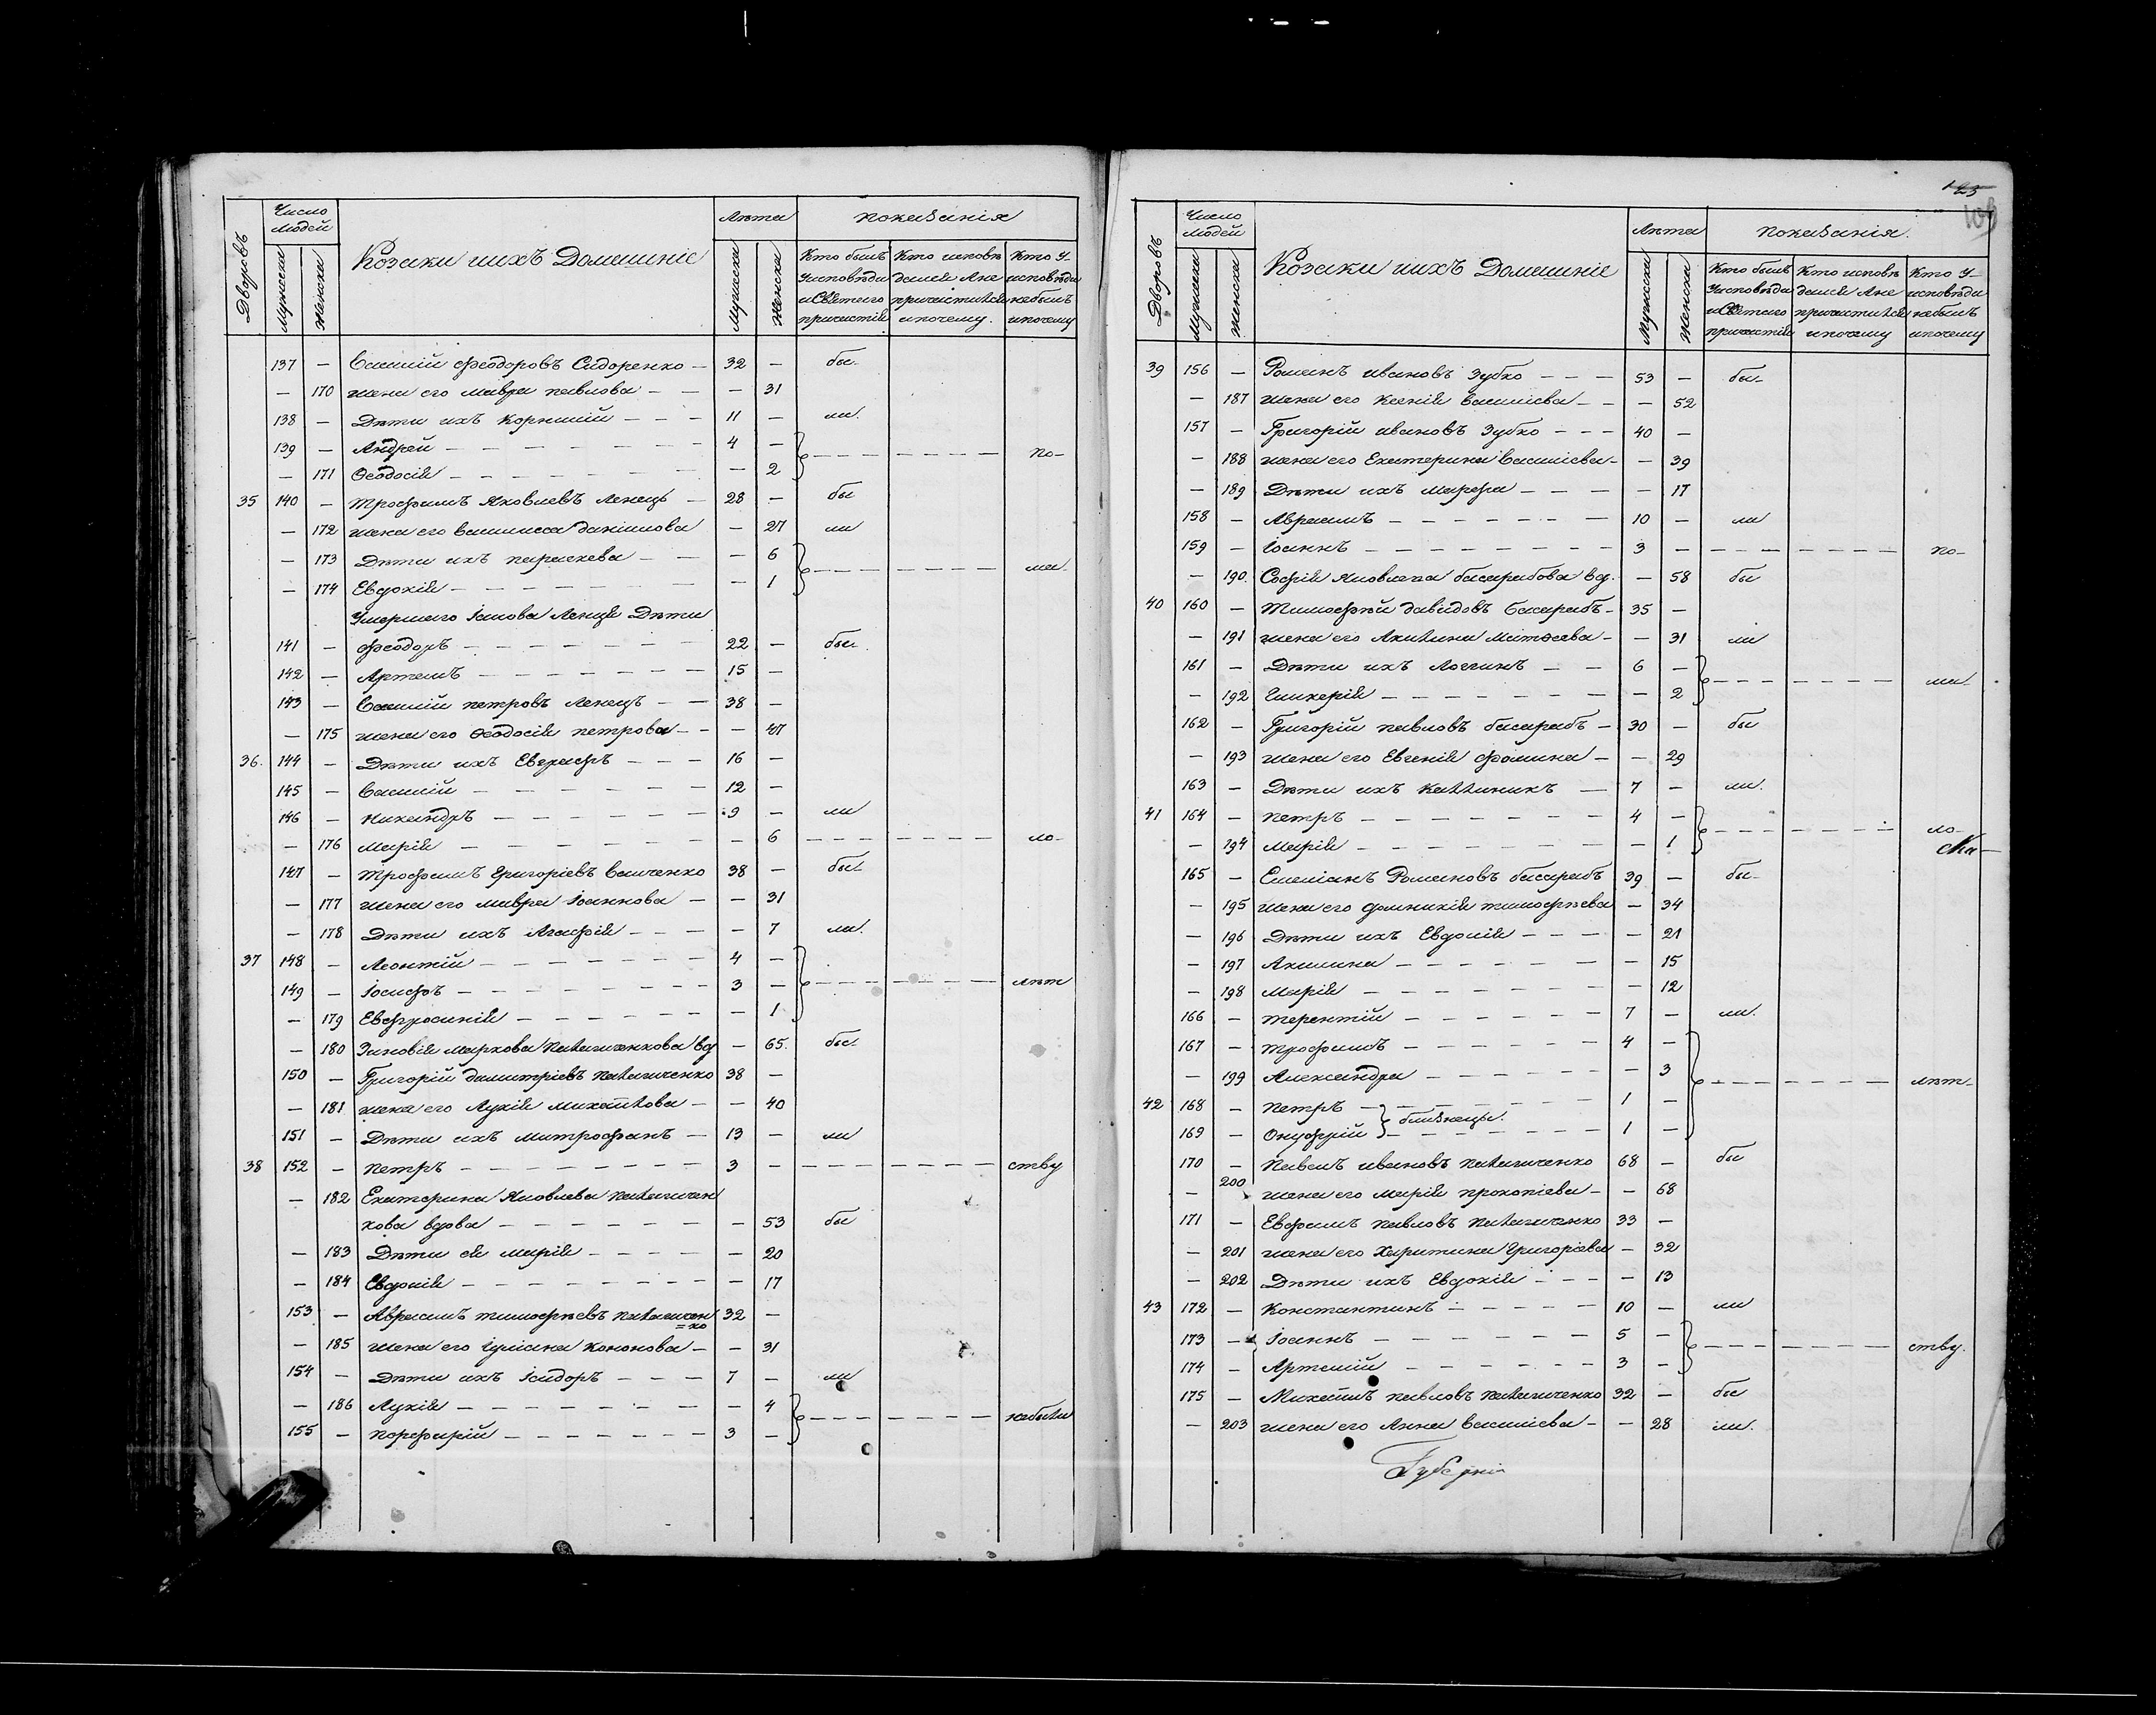 Дворовъ
Число Людей
Мужеска
Женска
Козаки ихъ Домашніе
Лѣта
Мужеска
Женска
показанія
Кто былъ Уисповѣди иСвятаго причастія
Кто исповѣ дался Ане причастился ипочему.
Кто У- исповѣди небылъ ипочему
137 — Василій Феодоровъ Сидоренко — 32 — бы-
— 170 жена его Мавра павлова — — 31
138 — Дѣти ихъ Корнилій — 11 — ли.
139 — Андрей — 4 —
— 171 Ѳеодосія — — 2 — по-
35 140 — Трофимъ Яковлевъ Ленецъ — 28 — бы
— 172 жена его Василиса даніилова — 27 ли
— 173 Дѣти ихъ параскева — — 6
— 174 Евдокія — — 1 — ма-
Умершаго Іакова Ленця Дѣти
141 — Феодоръ — 22 — бы-
142 — Артемъ — 15 —
143 — Василій петровъ Ленецъ — 38 —
— 175 жена его Ѳеодосія петрова — — 47
36. 144 — Дѣти ихъ Евграфъ — 16 —
145 — Василій — 12 —
146 — Никандръ — 9 — ли
— 176 Марія — — 6 — ло-
147 — Трофимъ Григоріевъ Ващенко 38 — бы-
— 177 жена его Мавра Іоаннова — — 31
— 178 Дѣти ихъ Агафія — — 7 ли.
37 148 — Леонтій — 4 —
149 — Іосифъ — 3 — лѣт
— 179 Евфросинія — — 1
— 180 Зиновія Маркова вд — 65. бы-
150 — Григорій Димитріевъ 38 —
— 181 жена его Лукія Михайлова — — 40
151 — Дѣти ихъ Митрофанъ — 13 — ли
38 152 — Петръ — 3 — ству
— 182 Екатерина Яковлева
кова вдова — — 53 бы
— 183 Дѣти ея Марія — — 20
— 184 Евдокія — — 17
153 — Авраамъ Тимофѣевъ 32 —
=ко
— 185 жена его Іуліана Кононова — — 31
154 — Дѣти ихъ Ісидоръ — 7 — ли
— 186 Лукія — — 4
155 — Порфирій — 3 — небыли
123
109
Дворовъ
Число Людей
Мужеска
Женска
Козаки ихъ Домашніе
Лѣта
Мужеска
Женска
показанія.
Кто былъ Уисповѣди иСвятаго причастія
Кто исповѣ дался Ане причастился ипочему
Кто У- исповѣди небылъ ипочему
39 156 — Романъ ивановъ Зубко — 53 — бы-
— 187 жена его Ксенія Василіева — — 52
157 — Григорій ивановъ Зубко — 40 —
— 188 жена его Екатерина Василіева — — 39
— 189 Дѣти ихъ Марфа — — 17
158 — Авраамъ — 10 — ли
159 — Іоаннъ — 3 — по-
— 190. Софія Яковлева басарабова вд. — 58 бы
40 160 — Тимофѣй давидовъ басарабъ — 35 —
— 191 жена его Акилина Матѳеева — — 31 ли
161 — Дѣти ихъ Логгинъ — 6 —
— 192 Гликерія — — 2 — ма-
162 — Григорій павловъ басарабъ — 30 — бы
— 193 жена его Евгенія Фомина — — 29
163 — Дѣти ихъ Каллиникъ — 7 — ли.
41 164 — Петръ — 4 —
— 194 Марія — — 1 — ло-
165 — Емеліанъ Романовъ басарабъ 39 — бы-
— 195 жена его домникія тимофѣева — 34
— 196 Дѣти ихъ Евдокія — — 21
— 197 Акилина — — 15
— 198 Марія — — 12
166 — Терентій — 7 — ли.
167 — Трофимъ — 4 —
— 199 Александра — — 3 — лѣт-
42 168 — Петръ — 1 —
близнецы.
169 — Онуфрій — 1 —
170 — Павелъ ивановъ 68 — бы
— 200 жена его Марія прокопіева — — 68
171 — Евфимъ павловъ 33 —
— 201 жена его Харитина Григоріева — 32
— 202 Дѣти ихъ Евдокія — — 13
43 172 — Константинъ — 10 — ли
173 — Іоаннъ — 5 —
174 — Артемій — 3 — ству.
175 — Михаилъ павловъ 32 — бы
— 203 жена его Анна Василіева — — 28 ли.